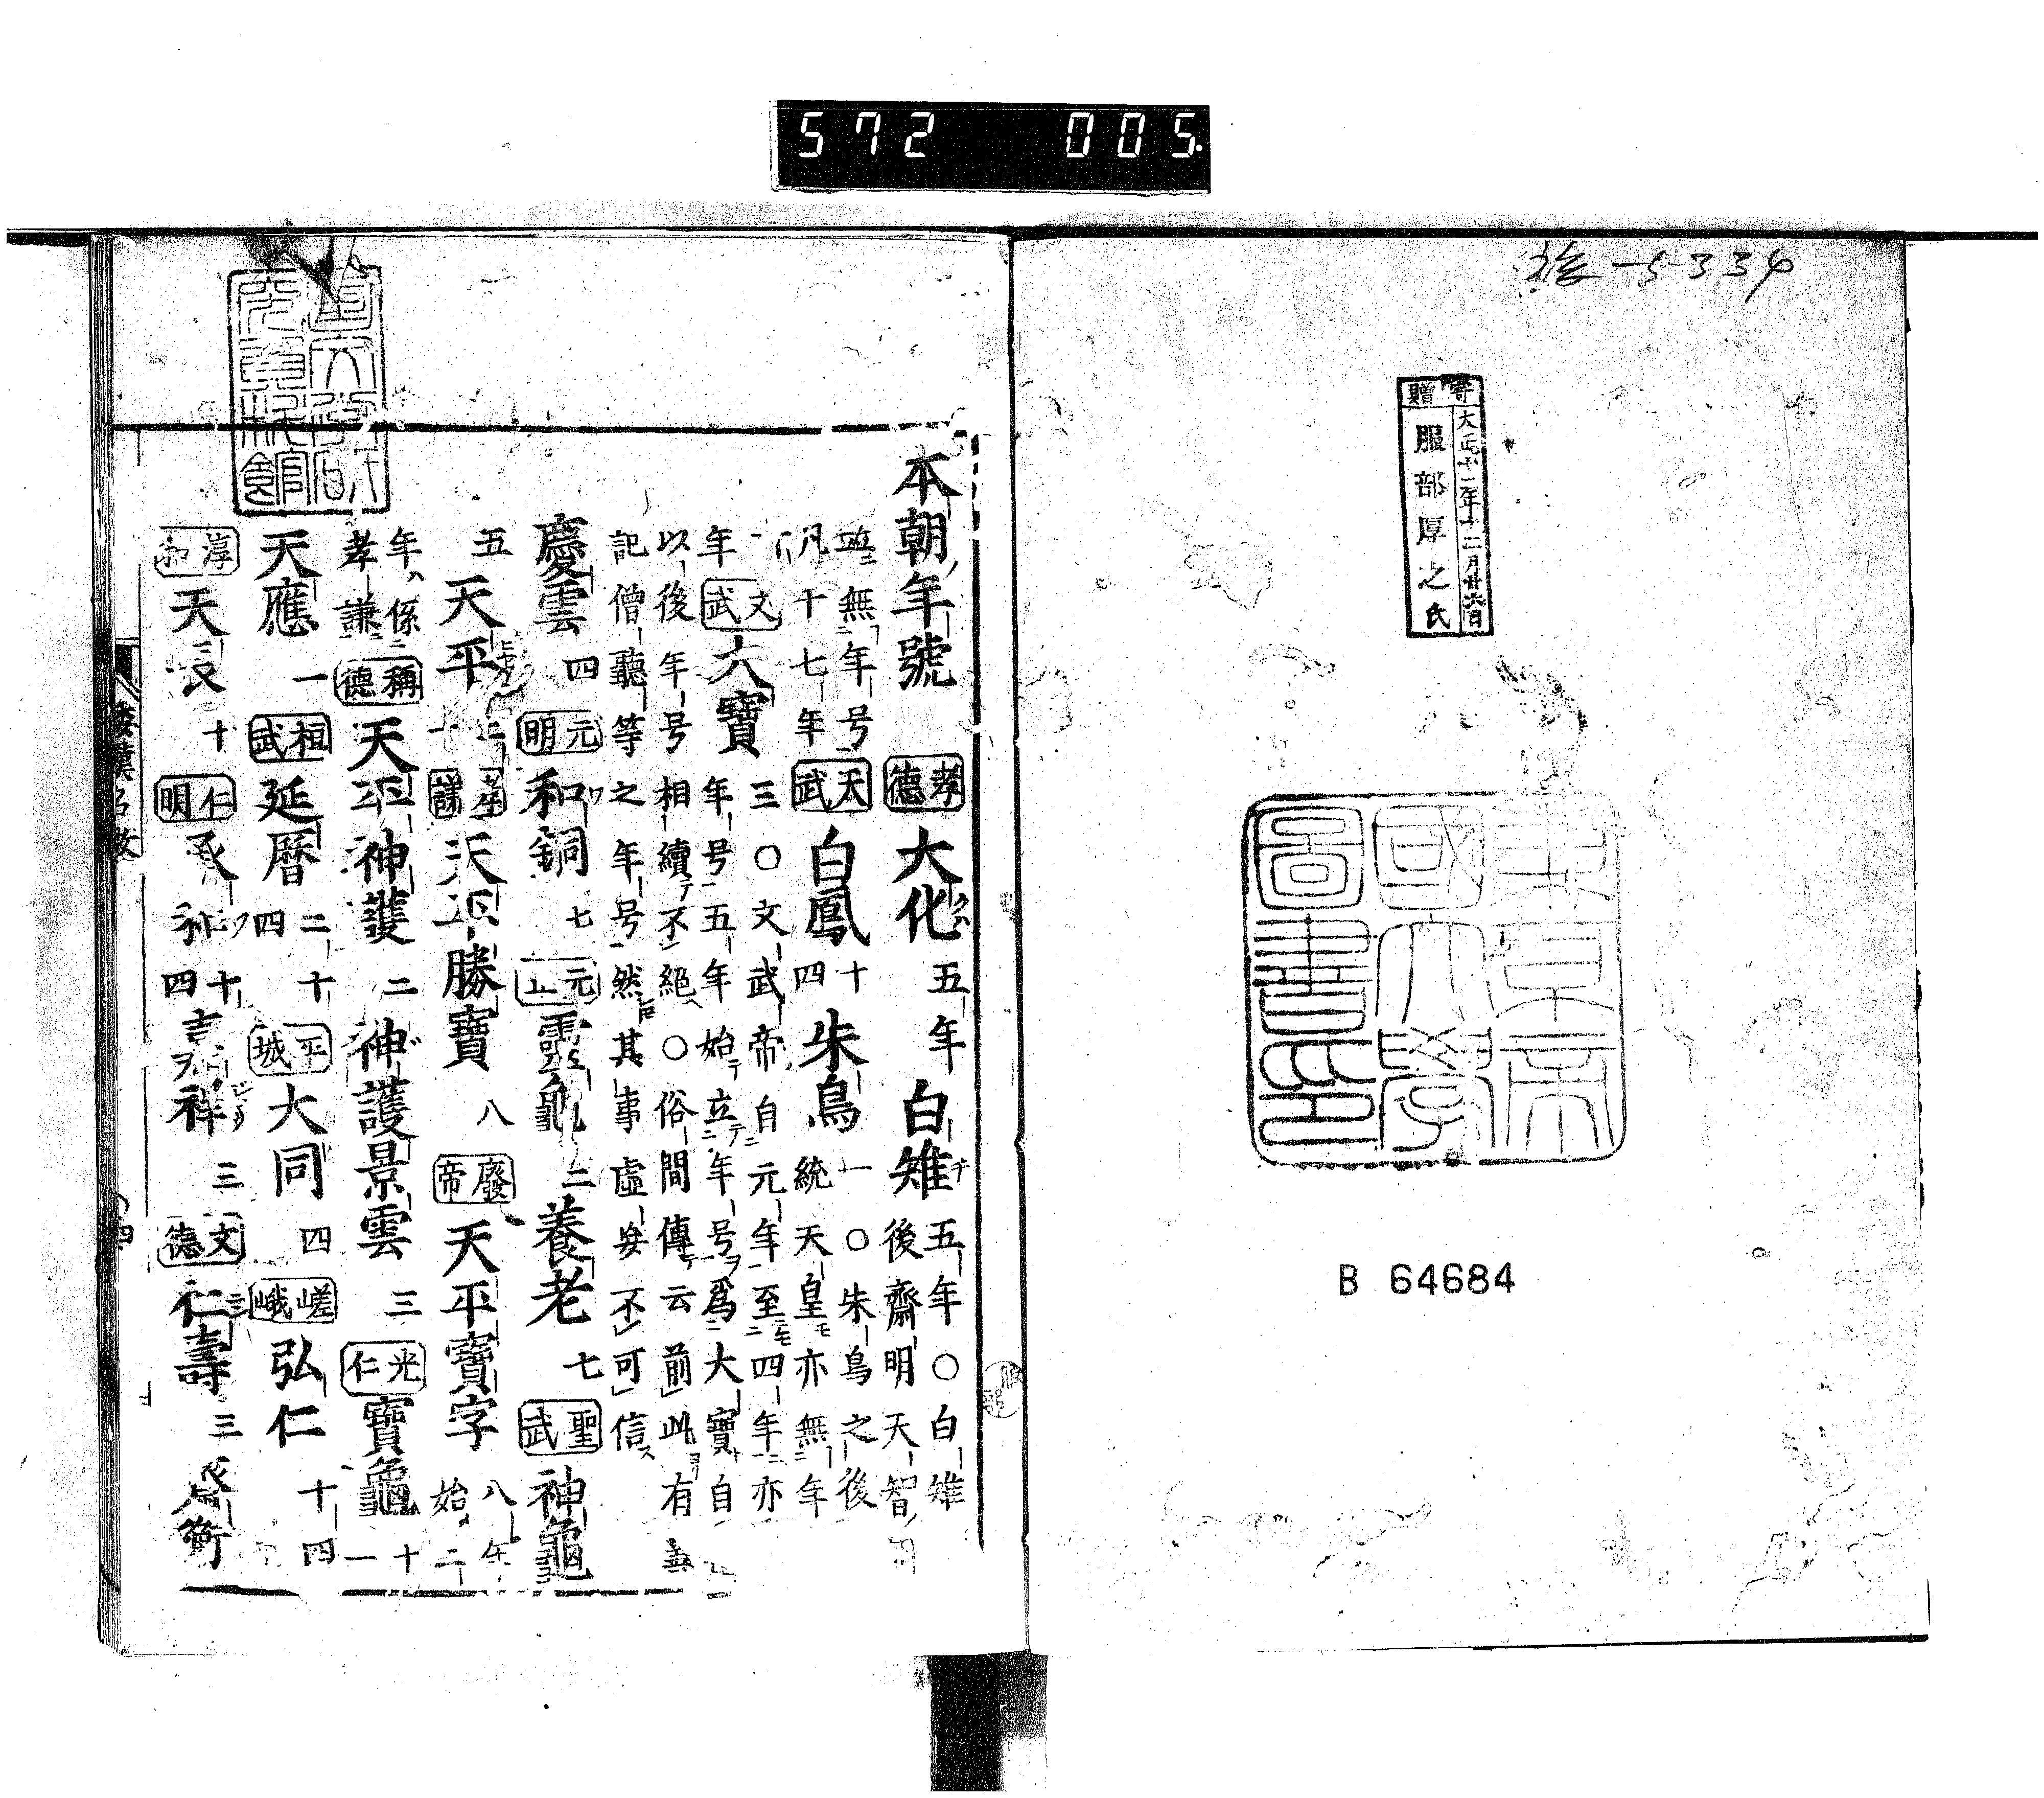 572 005.
一5334
寄贈
大正十二年十二月廿六日
服部厚之氏
東京帝
國大學
圖書印
B 64684
本朝年號 孝德 大化 五年 白雉 五年○白雉
後齋明天智
無年号 天武 白鳳 十四 朱鳥 一○朱鳥之後
凡十七年 統天皇亦無年
文武 大寶 三○文武帝自元年至四年亦
年 年号五年始立年号爲大寶自
以後年号相續不絕○俗間傳云前此有
記僧聽等之年号然其事虛妄不可信
慶雲 四 元明 和銅 七 元正 靈龜 二 養老 七 聖武 神龜
五 天平 孝謙 天平勝寶 八 廢帝 天平寶字 八年
始二
年係孝謙 稱德 天平神護 二 神護景雲 三 光仁 寶龜 十一
天應 一 桓武 延曆 二十四 平城 大同 四 嵯峨 弘仁 十四
淳和 天長 十 仁明 承和 十四 嘉祥 三 文德 仁壽 三 齊衡